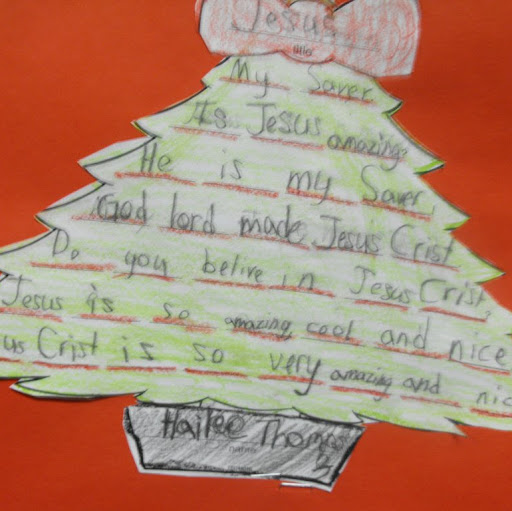 Jesus
title
My Saver
Is Jesus amazing?
He is my Saver,
God lord made Jesus Crist
Do you belive in Jesus Crist,
Jesus is so amazing cool and nice
us Crist is so very amazing and nic
Hailee Thomas
name